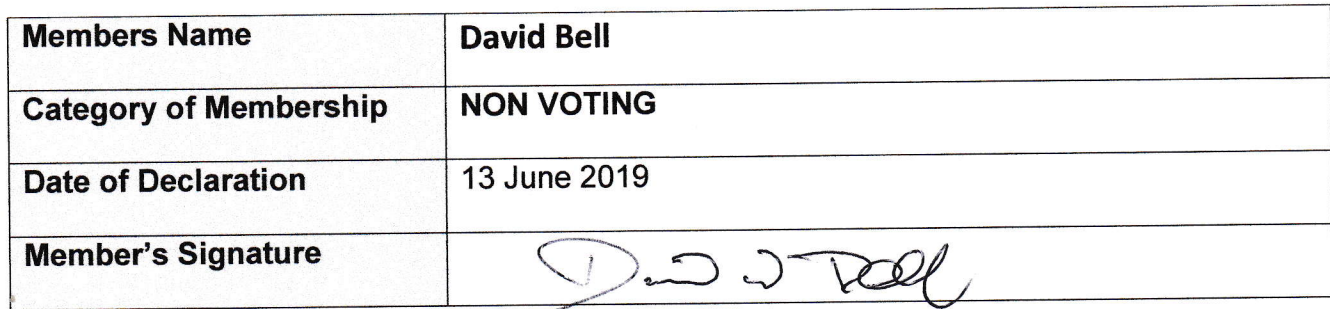 Members Name David Bell
Category of Membership NON VOTING
Date of Declaration 13 June 2019
Member's Signature David W Bell